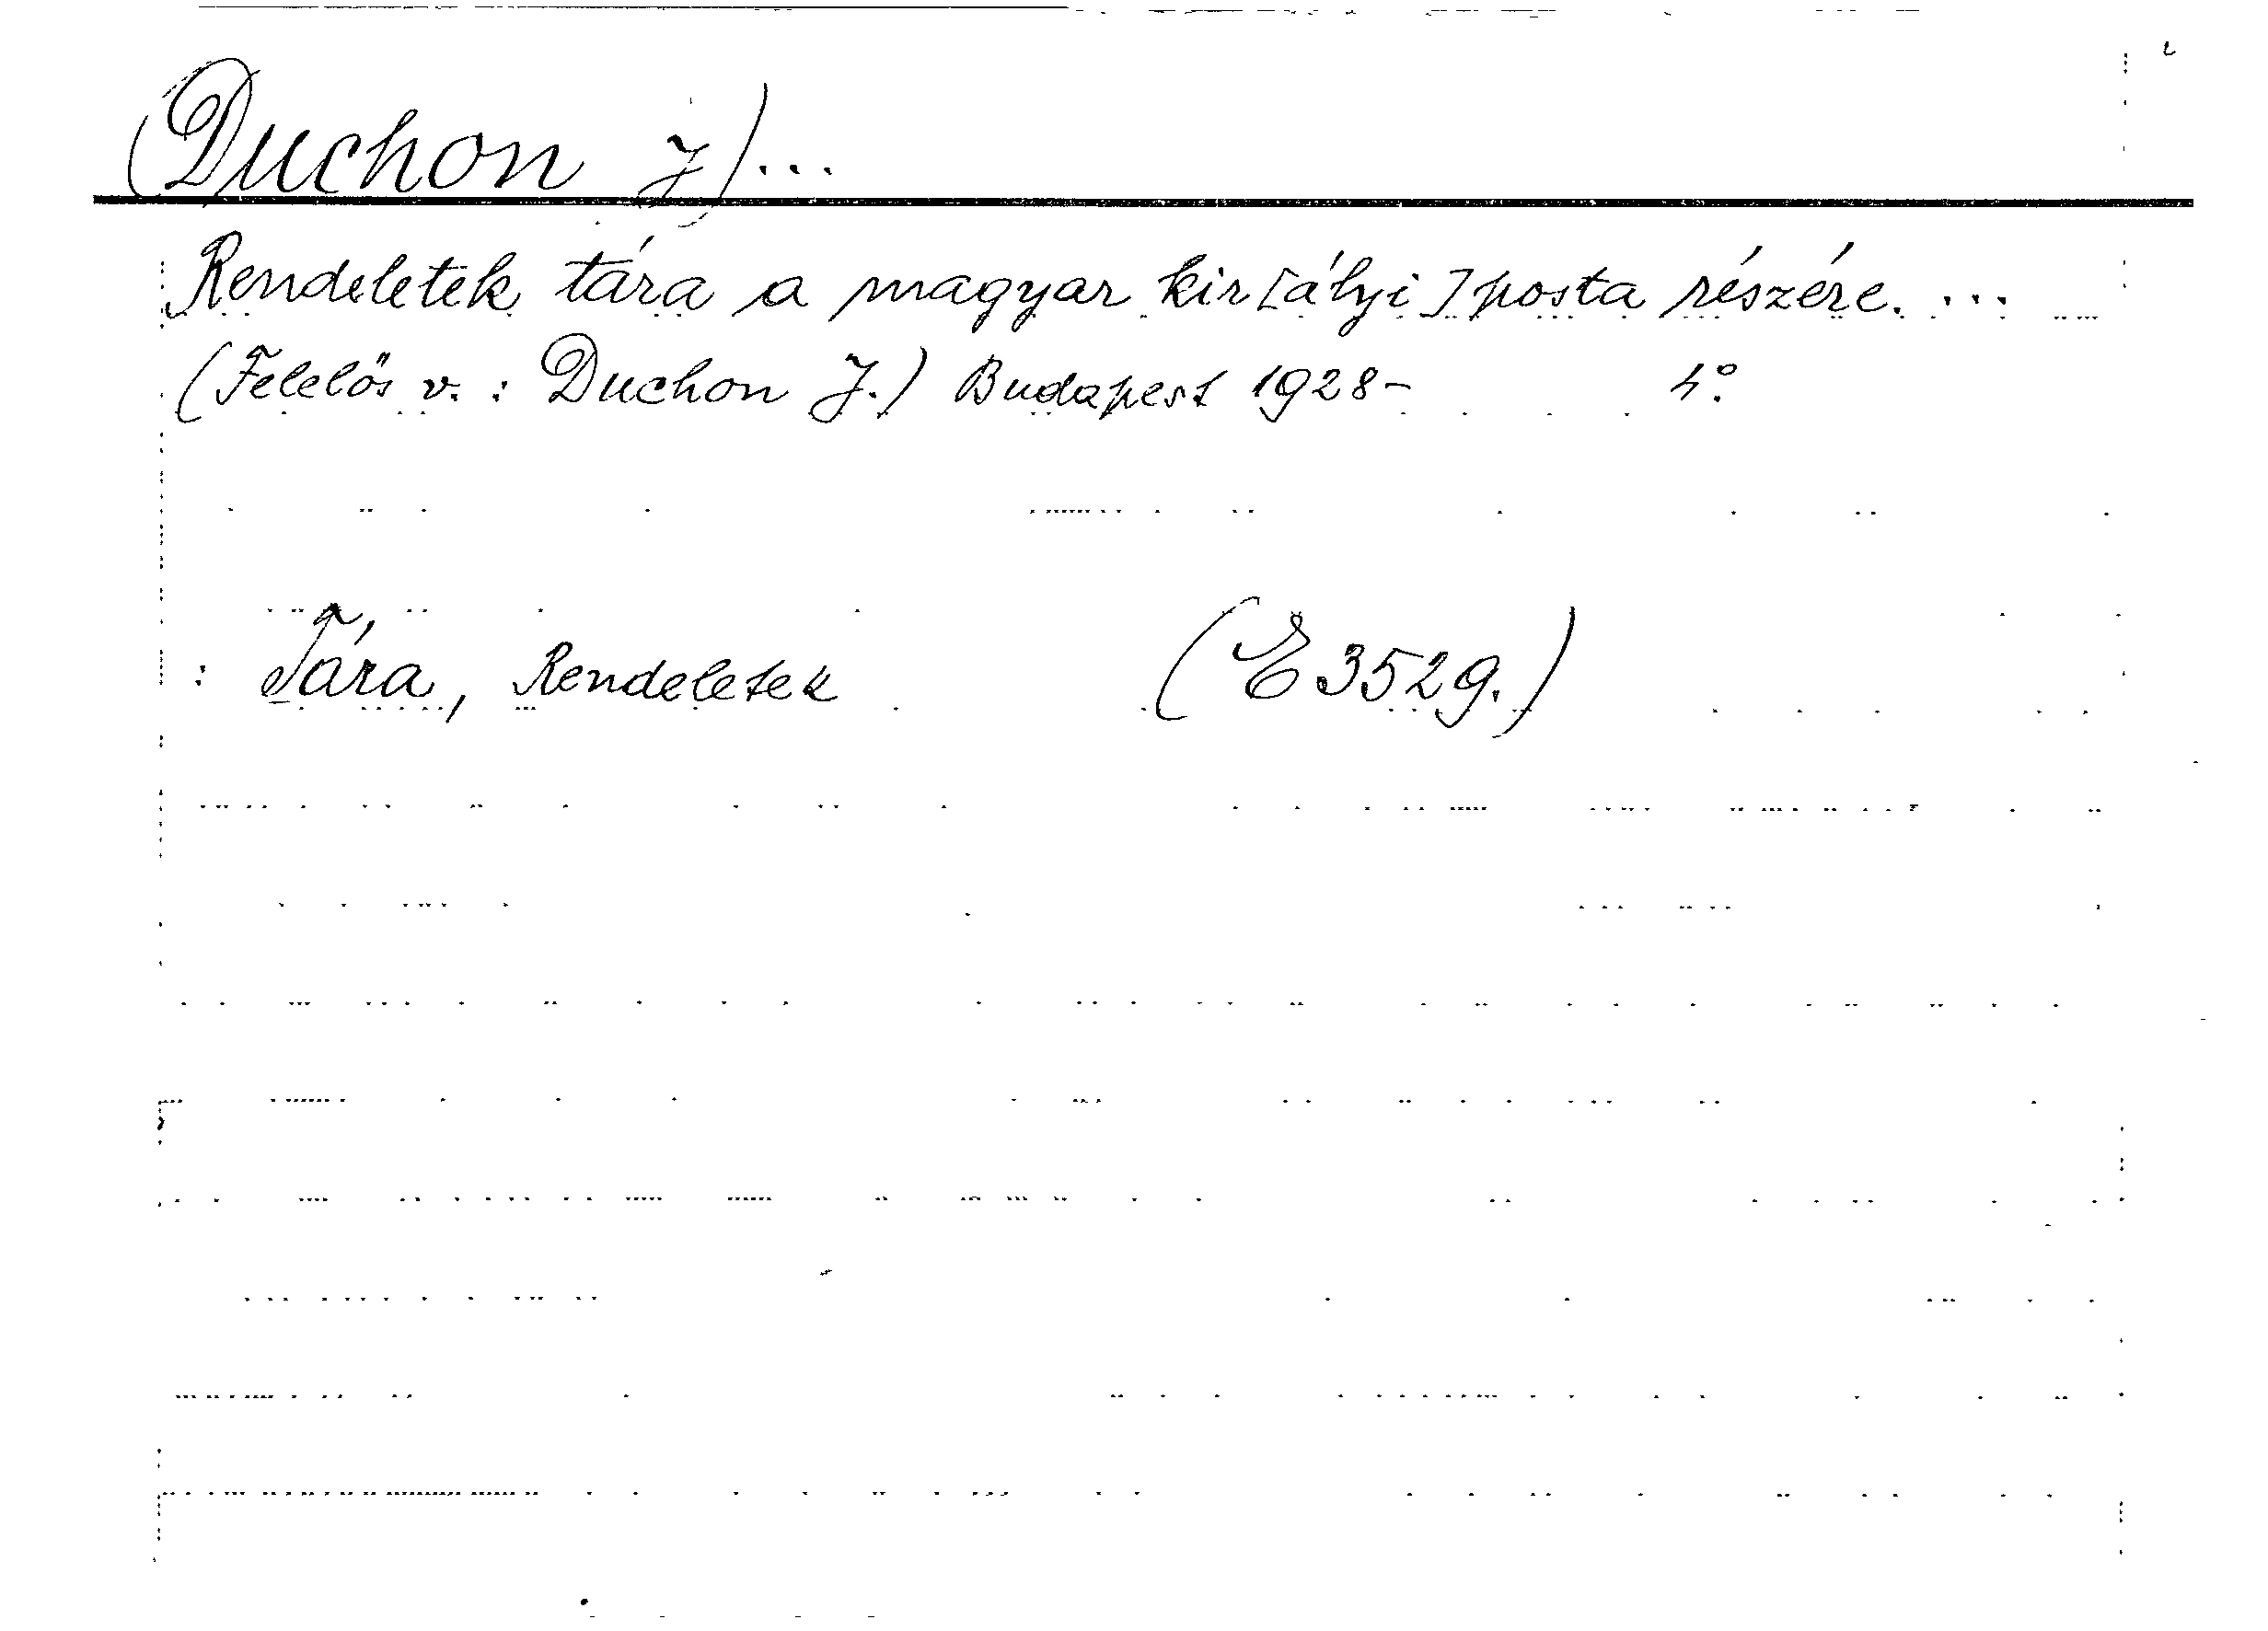 (Duchon J)...
Rendeletek tára a magyar kir[ályi] posta részére. ...
(Felelős v. : Duchon J.) Budapest 1928- 4°.
: Tára, Rendeletek (E 3529.)